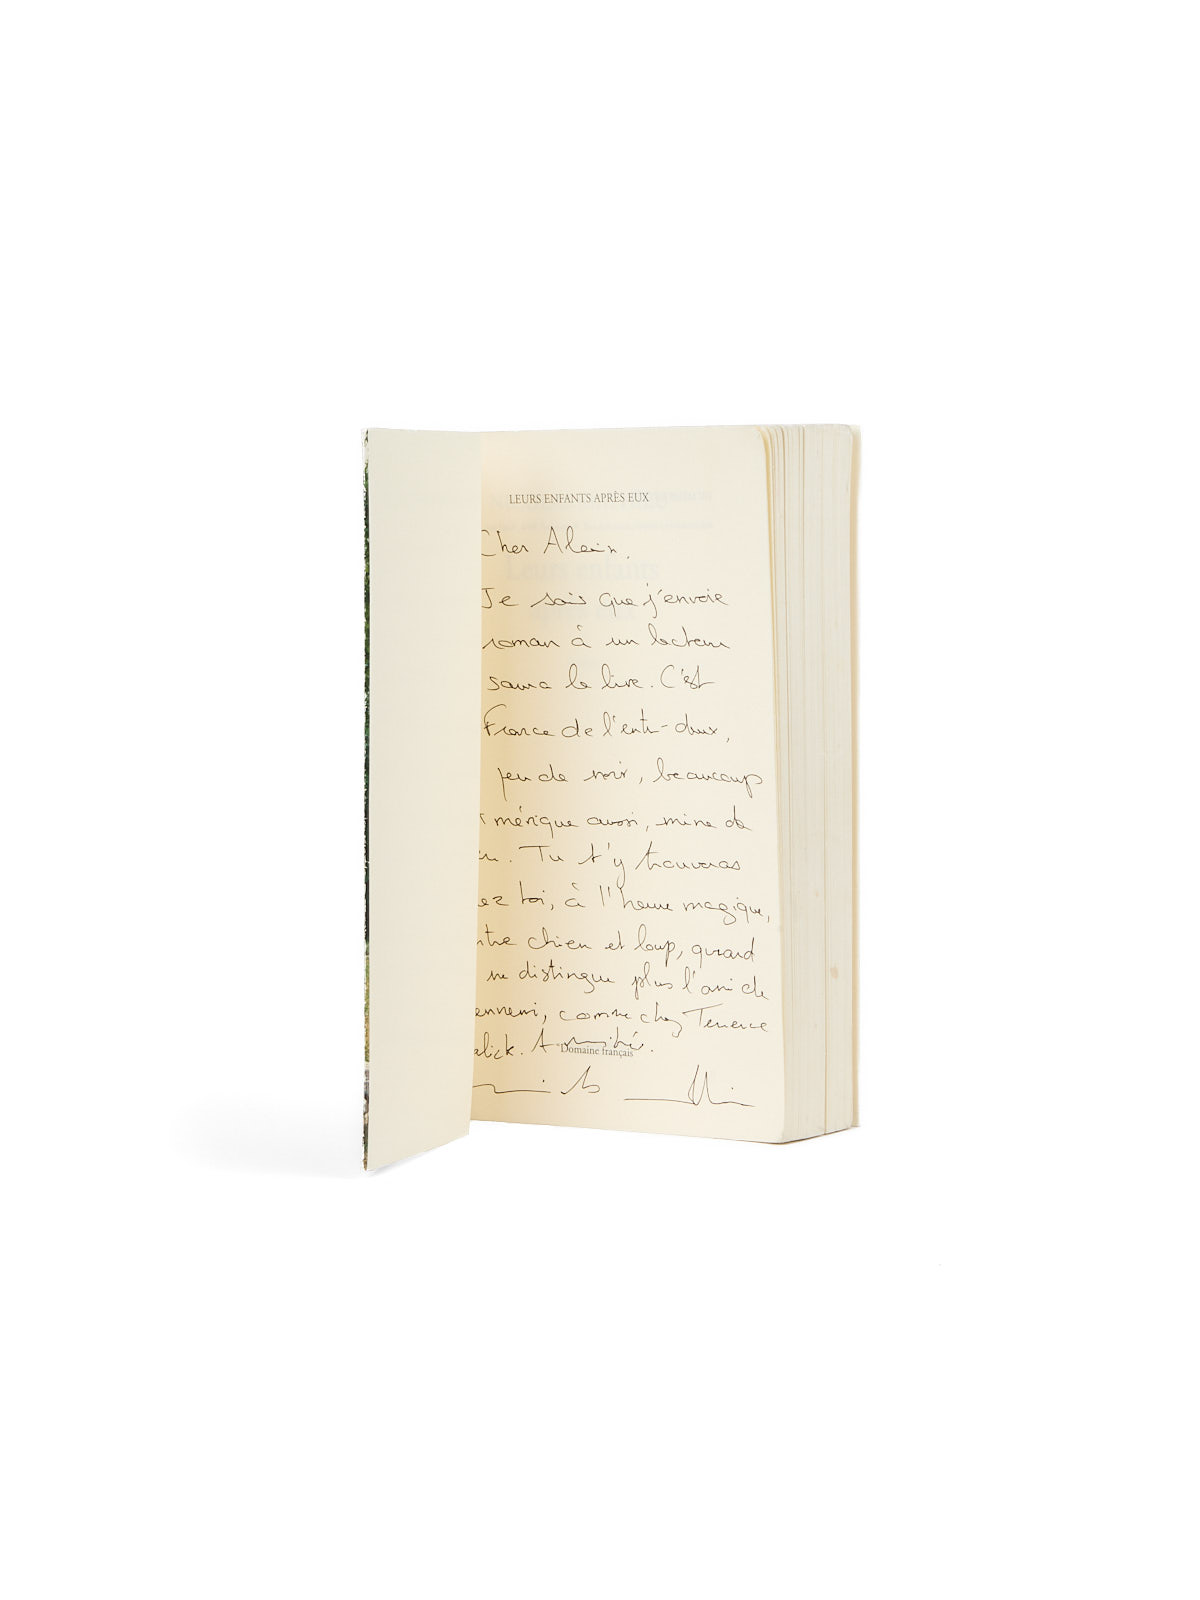 LEURS ENFANTS APRÈS EUX
Cher Alain,
Je sais que j'envoie
roman à un lecteur
saura le lire. C'est
France de l'entre-deux,
peu de noir, beaucoup
mérique aussi, mine de
en. Tu t'y trouveras
ez toi, à l'heure magique,
ntre chien et loup, quand
ne distingue plus l'ami de
ennemi, comme chez Terrence
alick. Amitié.
Domaine français